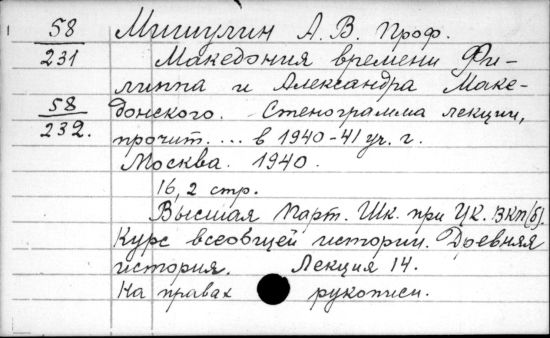 58 Мишулин А. В. Проф.
231 Македония времени Фи-
липпа и Александра Маке-
58 донского. Стенограмма лекции,
232. прочит. ... в 1940-41 уч. г.
Москва. 1940.
16, 2 стр.
Высшая Парт. Шк. при ЦК. ВКП(б).
Курс всеобщей истории. Древняя
история. Лекция 14.
На правах рукописи.